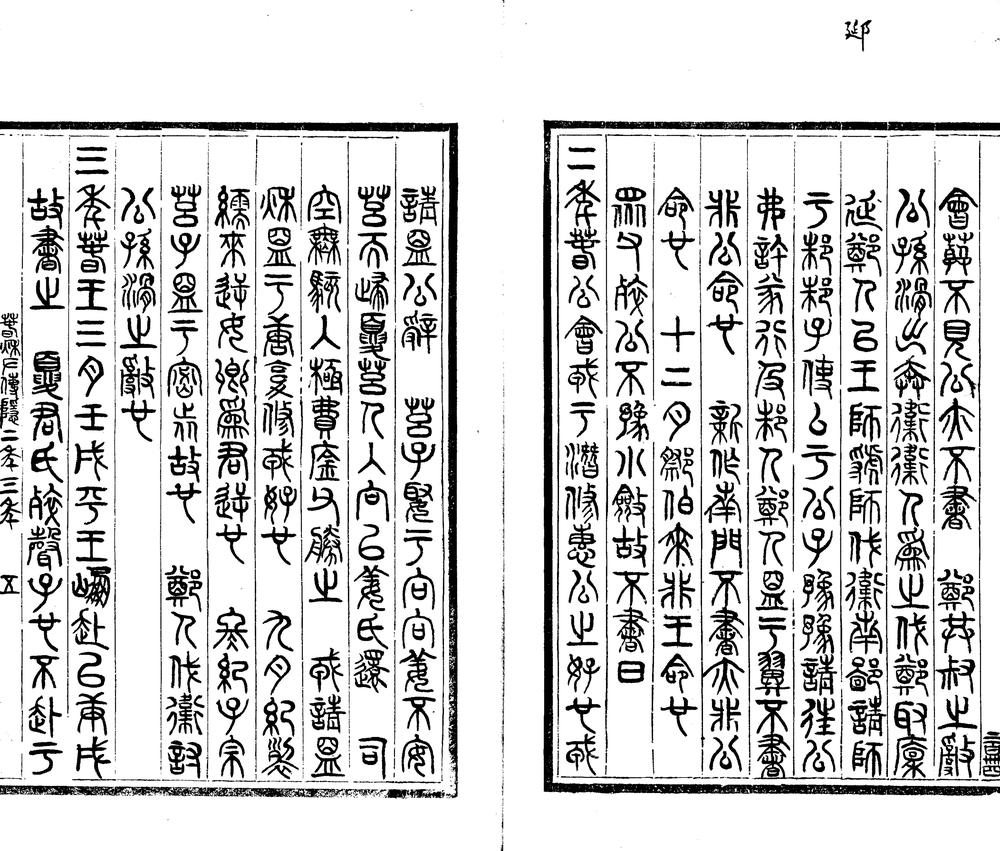 郔
會葬不見公亦不書　鄭共叔之亂
公孫滑出奔衞衞人爲之伐鄭取廩
延鄭人以王師虢師伐衞南鄙請師
于邾邾子使私于公子豫豫請往公
弗許遂行及邾人鄭人盟于翼不書
非公命也　新作南門不書亦非公
命也　十二月祭伯來非王命也
眾父卒公不豫小斂故不書日
二年春公會戎于潛修惠公之好也戎
請盟公辭　莒子娶于向向姜不安
莒而歸夏莒人入向以姜氏還　司
空無駭入極費庈父勝之　戎請盟
秋盟于唐復修戎好也　九月紀裂
繻來逆女卿爲君逆也　冬紀子帛
莒子盟于密魯故也　鄭人伐衞討
公孫滑之亂也
三年春王三月壬戌平王崩赴以庚戌
故書之　夏君氏卒聲子也不赴于
春秋左傳隱二年三年　五